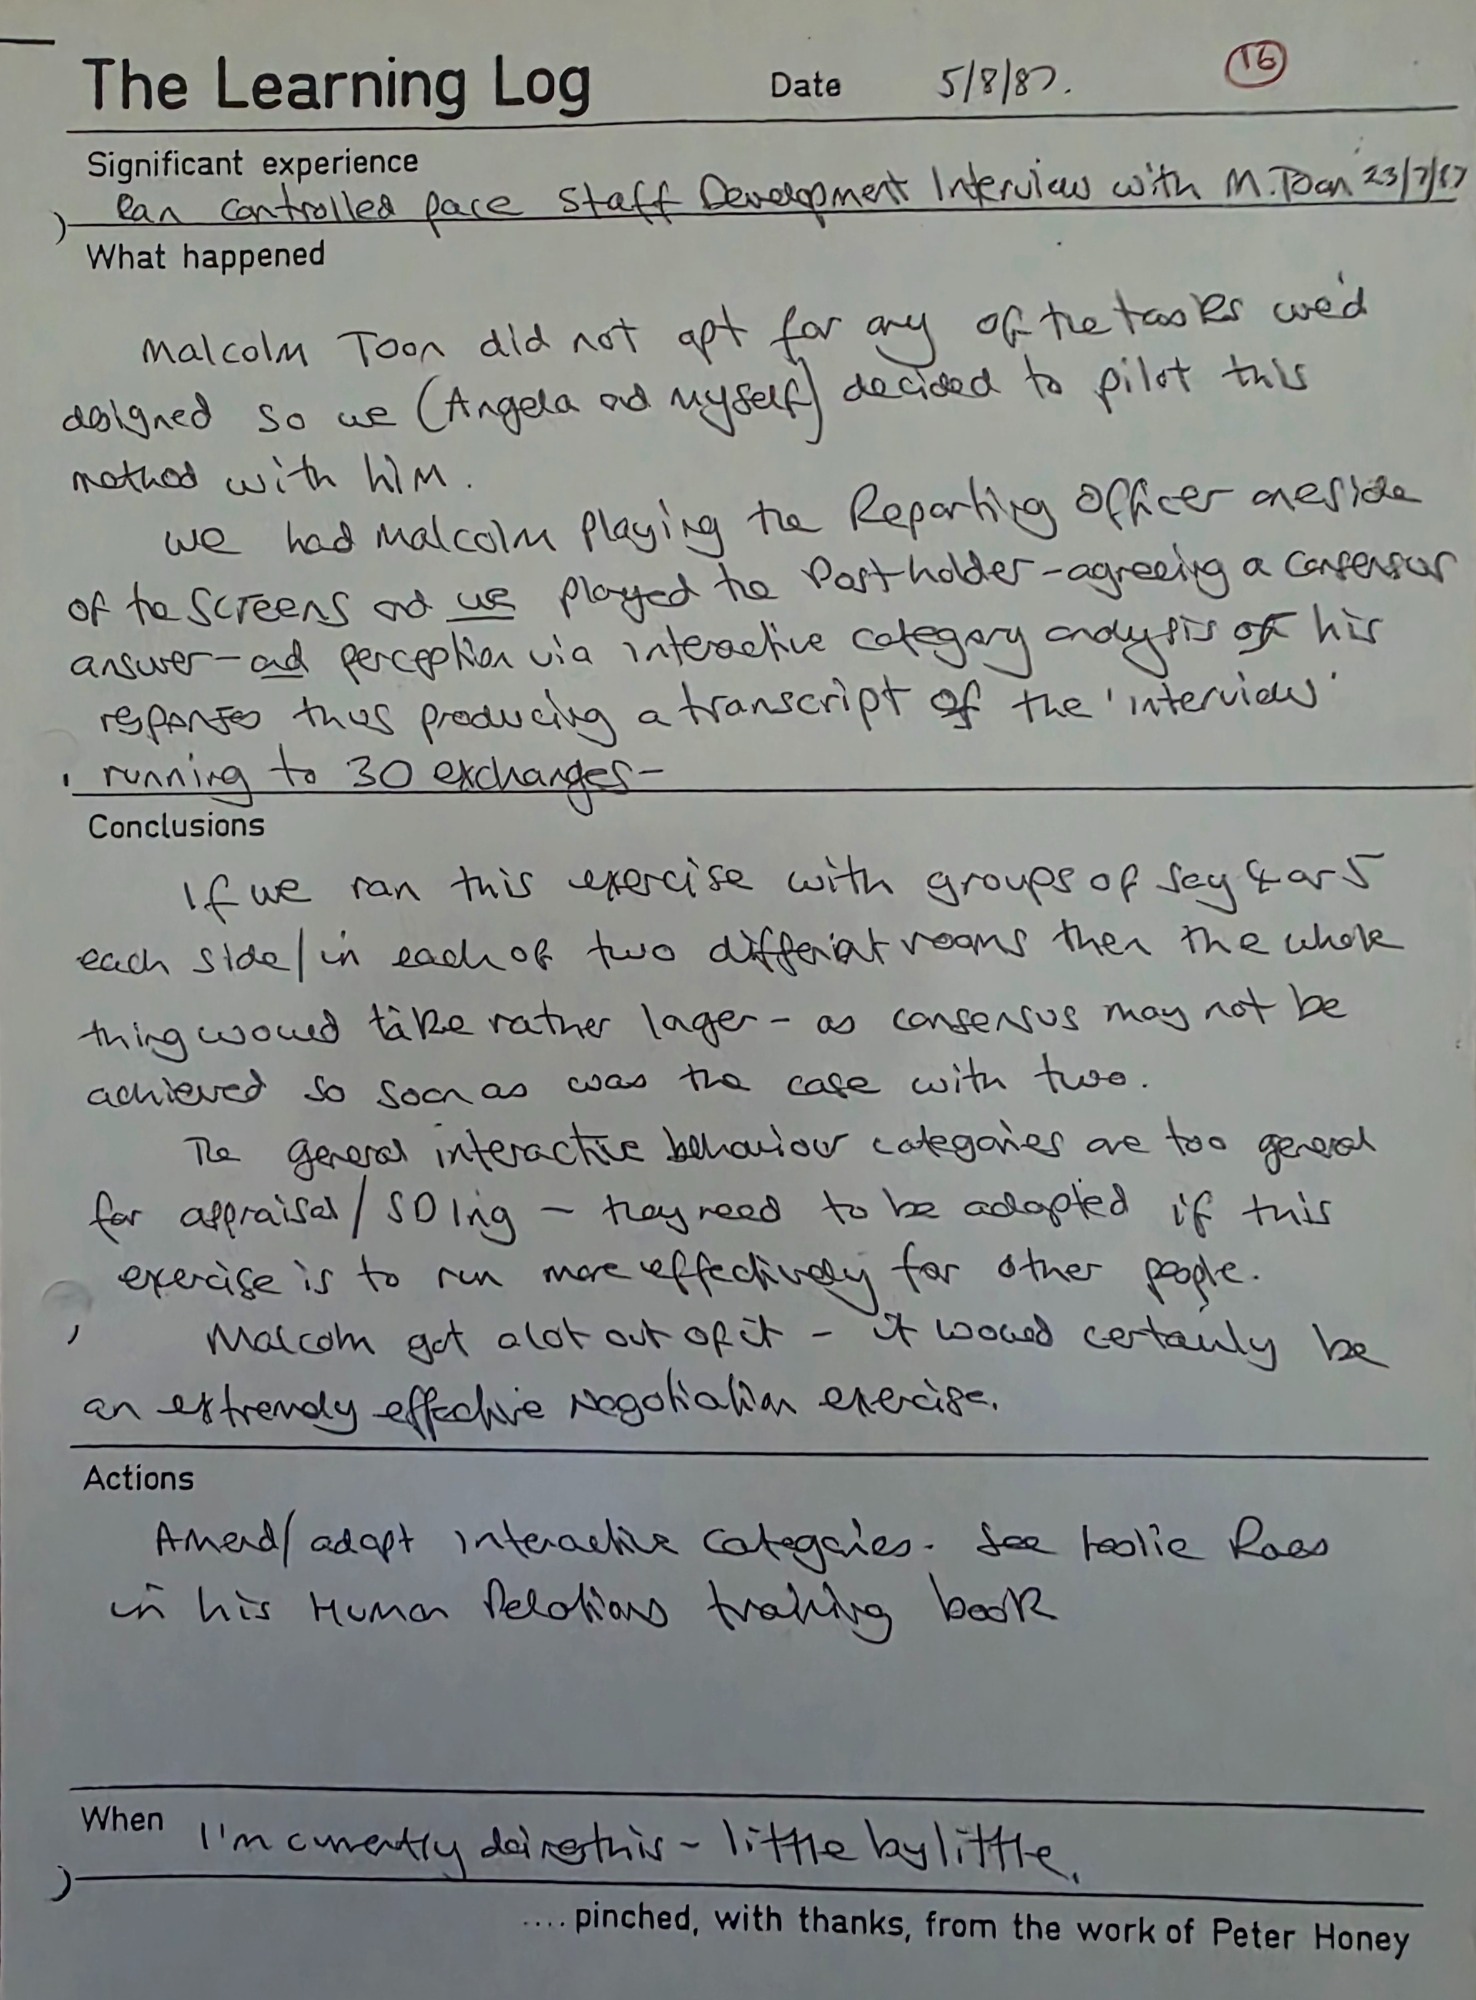 The Learning Log Date 5/8/87. 16
Significant experience
Ran controlled pace Staff Development Interview with M.Toon 23/7/87
What happened
Malcolm Toon did not opt for any of the tasks we'd
designed so we (Angela and myself) decided to pilot this
method with him.
We had Malcolm playing the Reporting Officer oneside
of the screens and we played the Postholder - agreeing a consensus
answer - and perception via interactive category analysis of his
responses thus producing a transcript of the 'interview'
running to 30 exchanges -
Conclusions
If we ran this exercise with groups of say 4 or 5
each side/in each of two different rooms then the whole
thing would take rather longer - as consensus may not be
achieved so soon as was the case with two.
The general interactive behaviour categories are too general
for appraisal/SDIng - they need to be adapted if this
exercise is to run more effectively for other people.
Malcolm got a lot out of it - it would certainly be
an extremely effective negotiation exercise.
Actions
Amend/adapt interactive categories. See Leslie Raes
in his Human Relations training book
When I'm currently doing this - little by little.
.... pinched, with thanks, from the work of Peter Honey